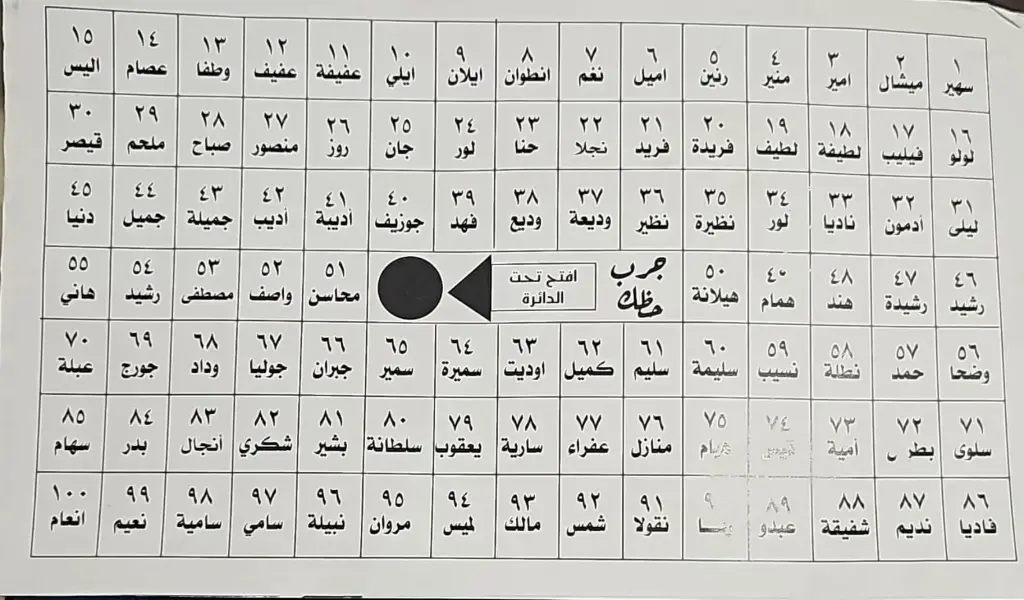 ١ ٢ ٣ ٤ ٥ ٦ ٧ ٨ ٩ ١٠ ١١ ١٢ ١٣ ١٤ ١٥
سهير ميشال امير منير رنين اميل نغم انطوان ايلان ايلي عفيفة عفيف وطفا عصام اليس
١٦ ١٧ ١٨ ١٩ ٢٠ ٢١ ٢٢ ٢٣ ٢٤ ٢٥ ٢٦ ٢٧ ٢٨ ٢٩ ٣٠
لولو فيليب لطيفة لطيف فريدة فريد نجلا حنا لور جان روز منصور صباح ملحم قيصر
٣١ ٣٢ ٣٣ ٣٤ ٣٥ ٣٦ ٣٧ ٣٨ ٣٩ ٤٠ ٤١ ٤٢ ٤٣ ٤٤ ٤٥
ليلى أدمون ناديا لور نظيرة نظير وديعة وديع فهد جوزيف أديبة أديب جميلة جميل دنيا
٤٦ ٤٧ ٤٨ ٤٠ ٥٠ جرب افتح تحت ٥١ ٥٢ ٥٣ ٥٤ ٥٥
رشيد رشيدة هند همام هيلانة حظك الدائرة محاسن واصف مصطفى رشيد هاني
٥٦ ٥٧ ٥٨ ٥٩ ٦٠ ٦١ ٦٢ ٦٣ ٦٤ ٦٥ ٦٦ ٦٧ ٦٨ ٦٩ ٧٠
وضحا حمد نطلة نسيب سليمة سليم كميل اوديت سميرة سمير جبران جوليا وداد جورج عبلة
٧١ ٧٢ ٧٣ ٧٤ ٧٥ ٧٦ ٧٧ ٧٨ ٧٩ ٨٠ ٨١ ٨٢ ٨٣ ٨٤ ٨٥
سلوى بطر س أمية منازل عفراء سارية يعقوب سلطانة بشير شكري أنجال بدر سهام
٨٦ ٨٧ ٨٨ ٨٩ ٩ ٩١ ٩٢ ٩٣ ٩٤ ٩٥ ٩٦ ٩٧ ٩٨ ٩٩ ١٠٠
فاديا نديم شفيقة عبدو نقولا شمس مالك لميس مروان نبيلة سامي سامية نعيم انعام